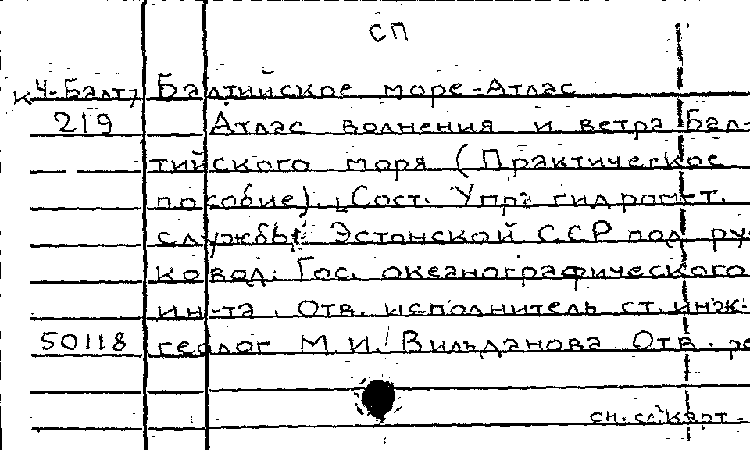 СП
К4-Балт7 Балтийское море-Атлас
219 Атлас волнения и ветра Бал-
тийского моря (Практическое
пособие). Сост. Упр. гидромет.
службы Эстонской ССР под ру
ковод. Гос. океанографического
ин-та. Отв. исполнитель ст. инж.
50118 геолог М.И. Вильданова Отв. ре
см. сл. карт.